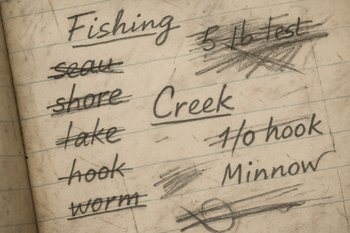 Fishing
5 lb test
seau
shore
lake
hook
worm
Creek
1/0 hook
Minnow